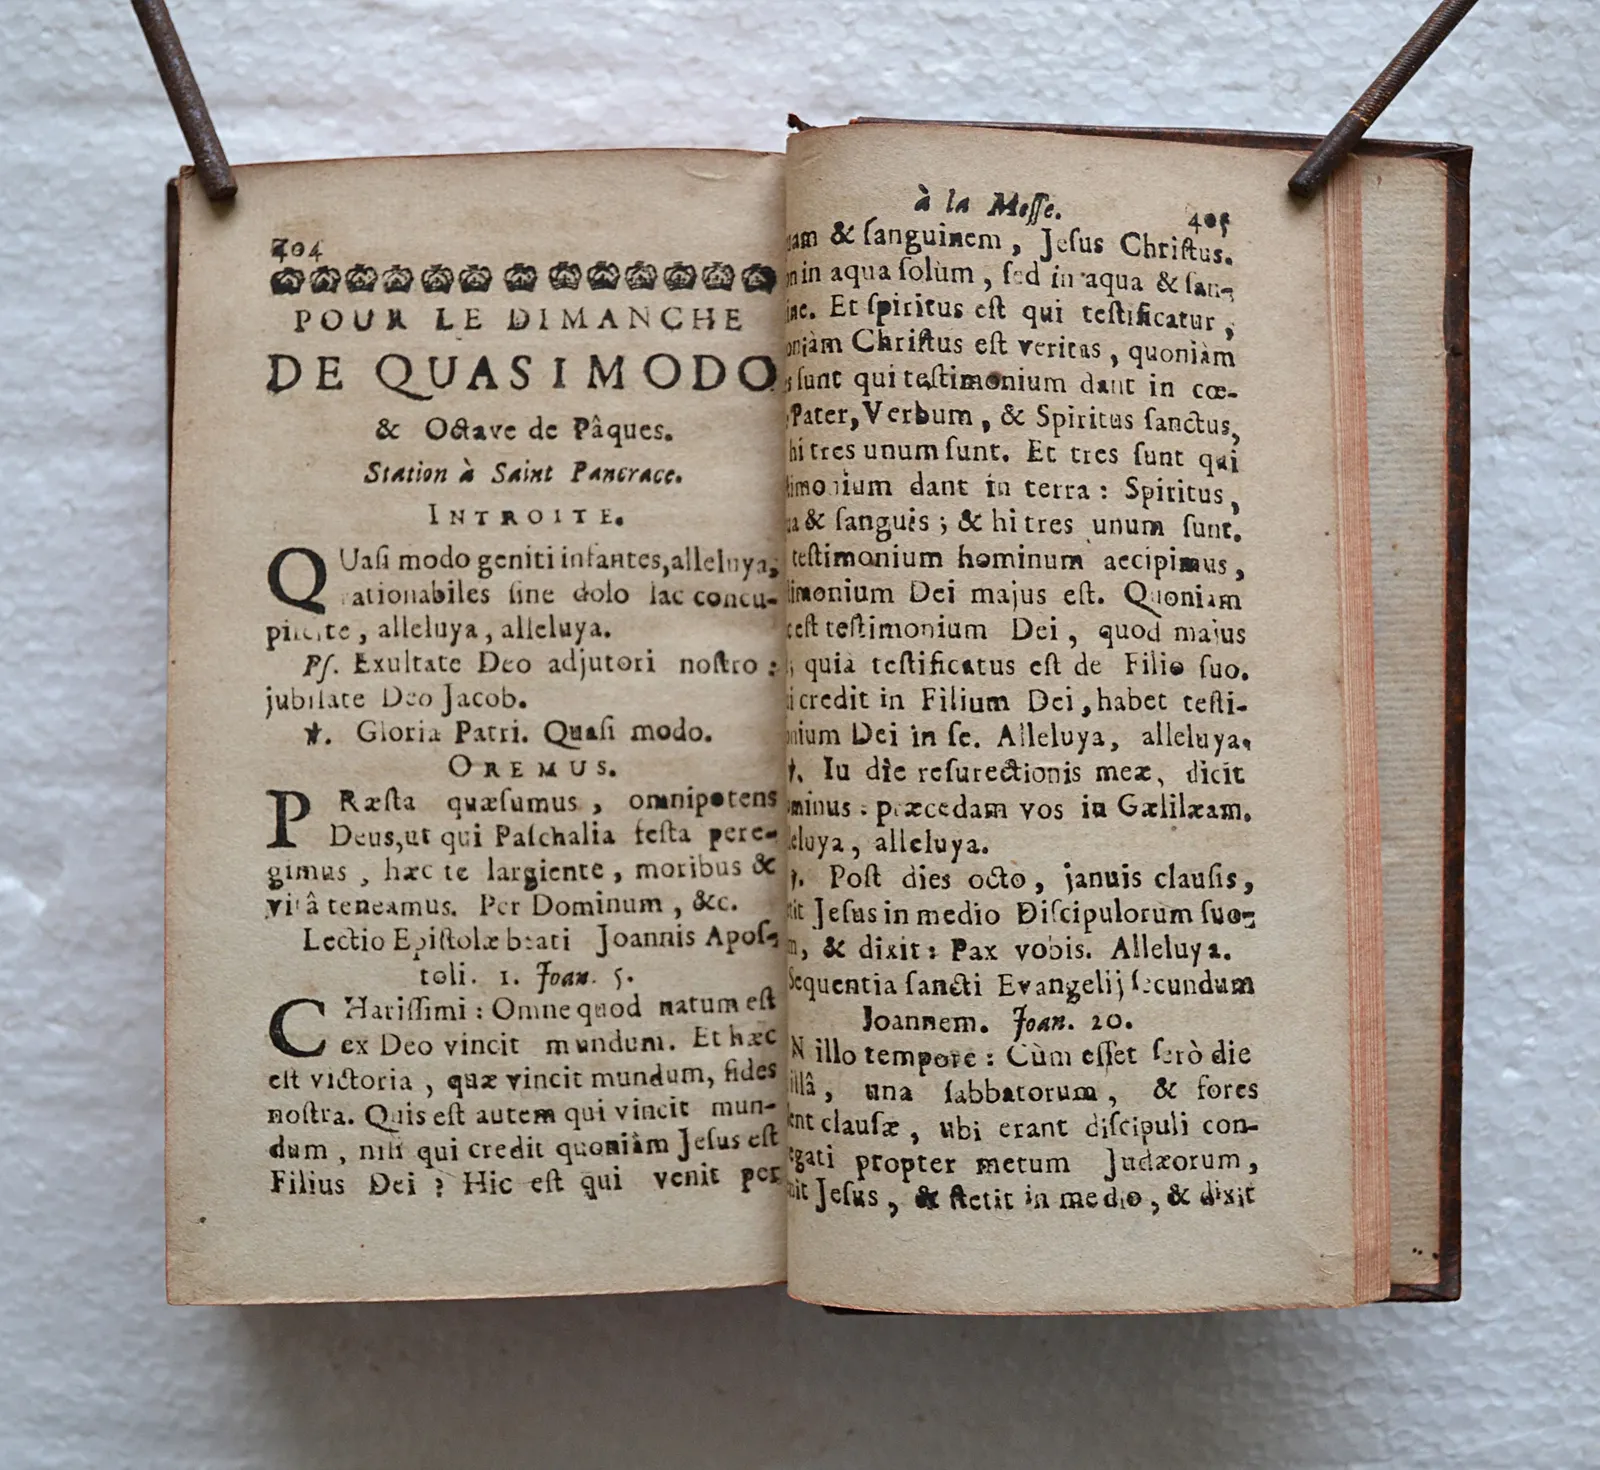 404
POUR LE DIMANCHE
DE QUASIMODO
& Octave de Pâques.
Station à Saint Pancrace.
INTROITE.
QUasi modo geniti infantes, alleluya,
rationabiles sine dolo lac concu-
piscite, alleluya, alleluya.
Ps. Exultate Deo adjutori nostro:
jubilate Deo Jacob.
℣. Gloria Patri. Quasi modo.
OREMUS.
PRæsta quæsumus, omnipotens
Deus, ut qui Paschalia festa pere-
gimus, hæc te largiente, moribus &
vitâ teneamus. Per Dominum, &c.
Lectio Epistolæ beati Joannis Apos-
toli. 1. Joan. 5.
CHarissimi: Omne quod natum est
ex Deo vincit mundum. Et hæc
est victoria, quæ vincit mundum, fides
nostra. Quis est autem qui vincit mun-
dum, nisi qui credit quoniàm Jesus est
Filius Dei? Hic est qui venit per
à la Messe. 405
uam & sanguinem, Jesus Christus.
on in aqua solùm, sed in aqua & san-
ine. Et spiritus est qui testificatur,
oniàm Christus est veritas, quoniàm
s sunt qui testimonium dant in cœ-
Pater, Verbum, & Spiritus sanctus,
hi tres unum sunt. Et tres sunt qui
timonium dant in terra: Spiritus,
ua & sanguis; & hi tres unum sunt.
testimonium hominum aecipimus,
timonium Dei majus est. Quoniam
c est testimonium Dei, quod majus
, quia testificatus est de Filio suo.
i credit in Filium Dei, habet testi-
onium Dei in se. Alleluya, alleluya,
℣. Iu die resurectionis meæ, dicit
minus: præcedam vos in Gælilæam.
leluya, alleluya.
℣. Post dies octo, januis clausis,
tit Jesus in medio Discipulorum suo-
m, & dixit: Pax vobis. Alleluya.
Sequentia sancti Evangelij secundum
Joannem. Joan. 20.
N illo tempore: Cùm esset serò die
illâ, una sabbatorum, & fores
ent clausæ, ubi erant discipuli con-
egati propter metum Judæorum,
nit Jesus, & stetit in medio, & dixit